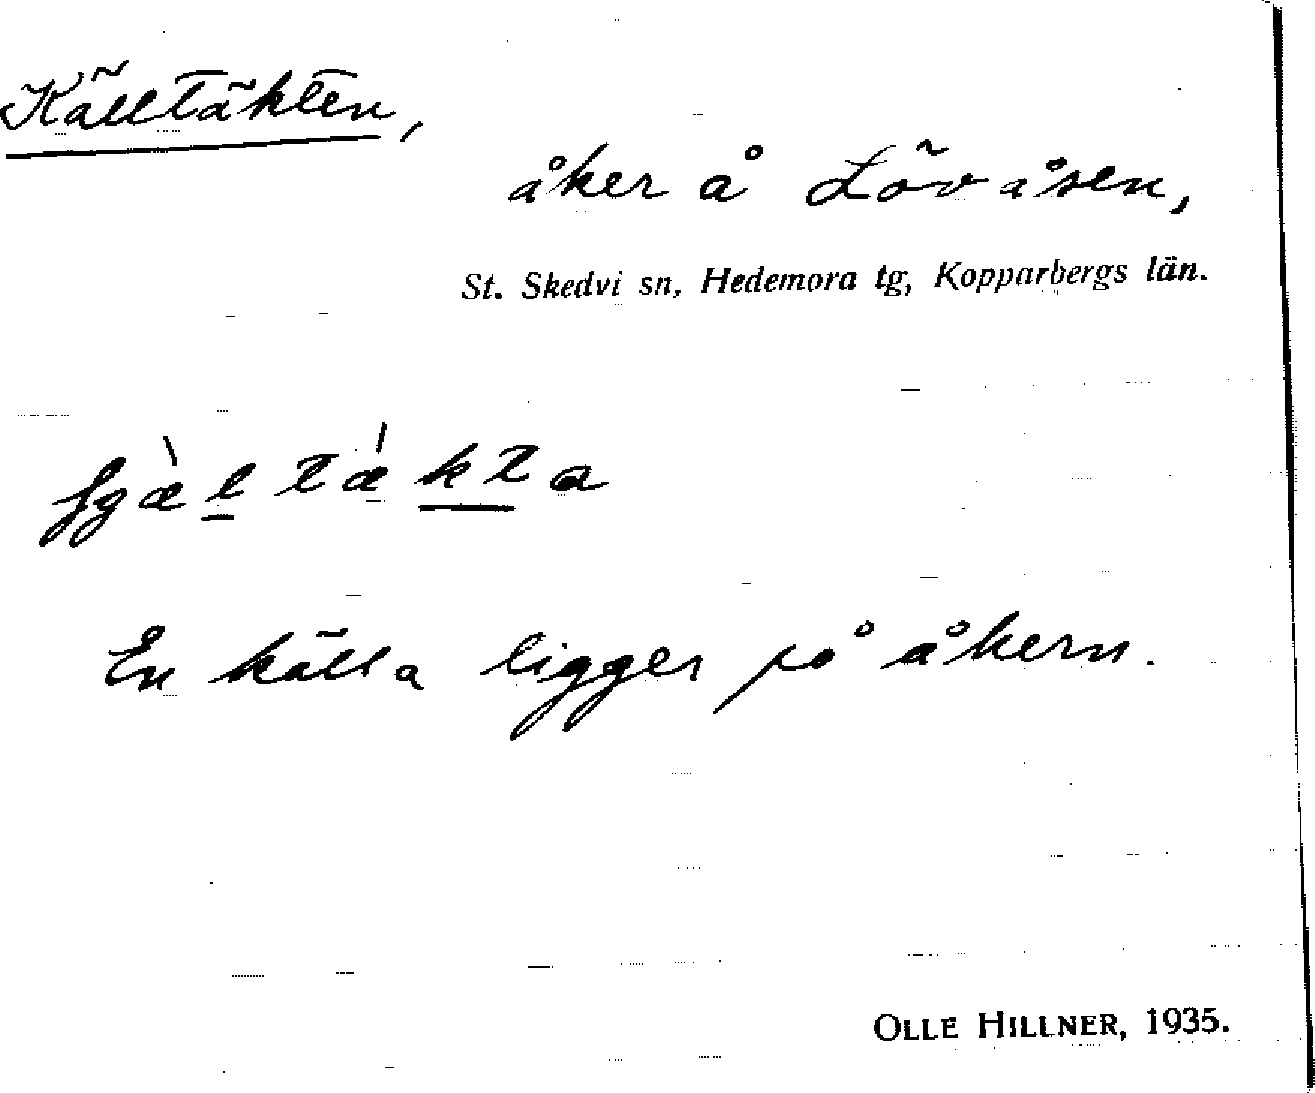 Källtäkten,
åker å Lövåsen,
St. Skedvi sn, Hedemora tg, Kopparbergs län.
En källa ligger på åkern.
OLLE HILLNER, 1935.